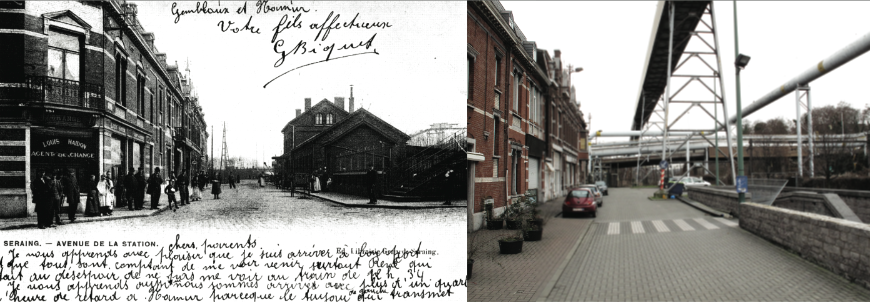 Gembloux et Namur.
Votre fils affectueux
G Biquet
LOUIS
AGENT DE CHANGE
SERAING. — AVENUE DE LA STATION.
chers parents.
Je vous apprends avec plaisir que je suis arrivé à
que tous, sont, comptant de me voir venir, surtout René qui
au desespoir, de ne pas me voir au train de
Je vous apprends aussi nous sommes arrivés avec plus d'un quart
heure de retard a Namur parceque le tuyau qui transmet